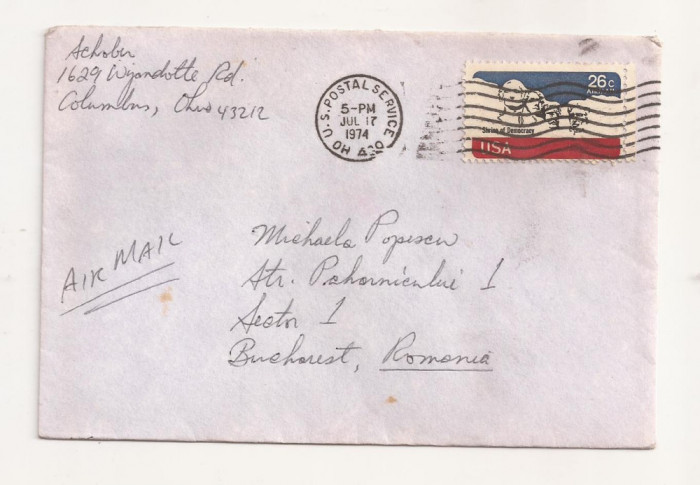 Schober
1629 Wyandotte Rd.
Columbus, Ohio 43212
U.S. POSTAL SERVICE
OH 430
5-PM
JUL 17
1974
26c
AIRMAIL
Shrine of Democracy
USA
AIR MAIL
Michaela Popescu
Str. Paharnicului 1
Sector 1
Bucharest, Romania